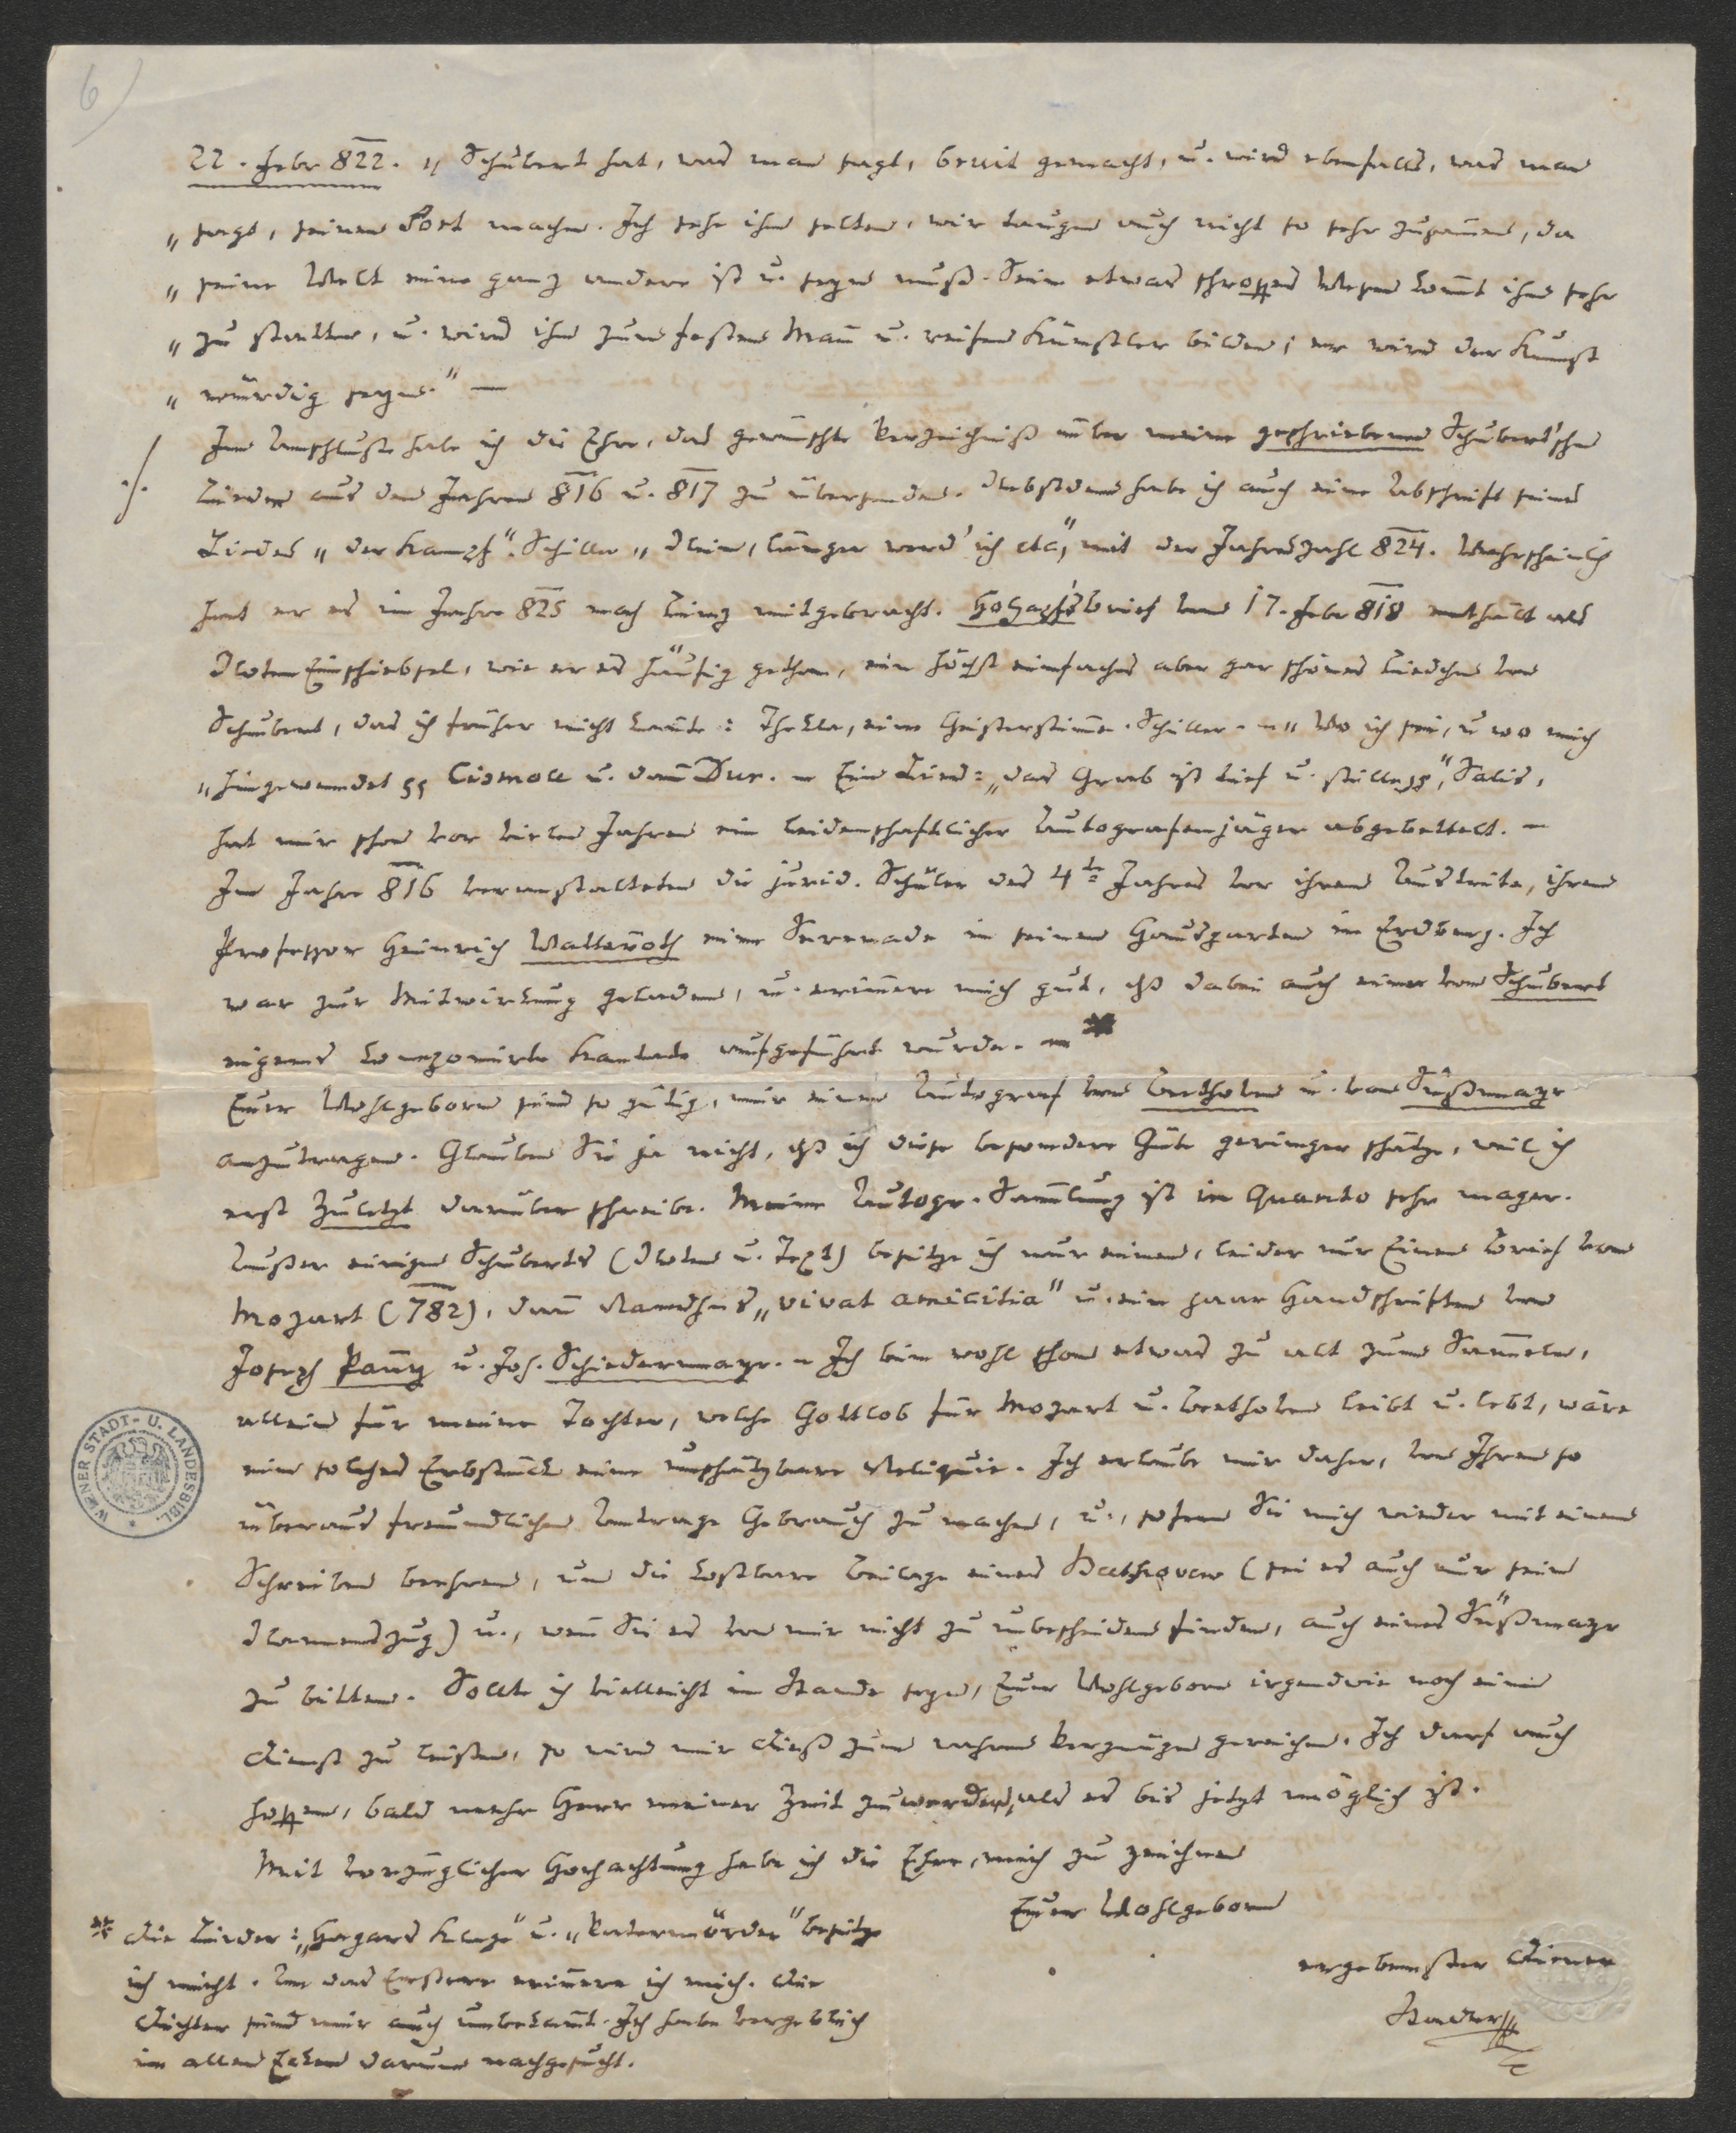 6)
22. Febr 822. „Schubert hat, was man sagt, bruit gemacht, u. wird ebenfalls, was man
„ sagt, seinen Sort machen. Ich sehe ihn selten, wir taugen auch nicht so sehr zusam̅en, da
„ seine Welt eine ganz andere ist u. seyn muß. Sein etwas schroffes Wesen kom̅t ihm sehr
„ zu statten, u. wird ihn zum festen Man̅ u. reifen Künstler bilden; er wird der Kunst
„ würdig seyn.“ —
Im Anschluße habe ich die Ehre, das gewünschte Verzeichniß über meine geschriebenen Schubert'schen
./. Lieder aus den Jahren 816 u. 817 zu übersenden. Nebstdem habe ich auch eine Abschrift seines
Liedes „der Kampf“. Schiller „Nein, länger werd' ich etc“, mit der Jahreszahl 824. Wahrscheinlich
hat er es im Jahre 825 nach Linz mitgebracht. Holzapfels brief vom 17. Febr 818 enthält als
Noten Einschiebsel, wie er es häufig gethan, ein höchst einfaches aber gar schönes Liedchen von
Schubert, das ich früher nicht kan̅te: Thekla, eine Geisterstim̅e. Schiller. – „Wo ich sei, u wo mich
„hingewendet Cismoll u. dan̅ Dur. – Ein Lied: „das Grab ist tief u. stille“, Salis,
hat mir schon vor vielen Jahren ein leidenschaftlicher Autografenjäger abgebettelt. –
Im Jahre 816 veranstalteten die jurid. Schüler des 4ten Jahres vor ihrem Austritte, ihrem
Professor Heinrich Watteroth eine Serenade in seinem Hausgarten in Erdberg. Ich
war zur Mitwirkung geladen, u. erin̅ere mich gut, dß dabei auch eine von Schubert
eigens komponirte Kantate aufgeführt wurde. – *
Euer Wohlgeboren sind so gütig, mir einen Autograf von Beethoven u. von Süßmayr
anzutragen. Glauben Sie ja nicht, dß ich diese besondere Güte geringer schätze, weil ich
erst zuletzt darüber schreibe. Meine Autogr. Sam̅lung ist in Quanto sehr mager.
Außer einigen Schuberts (Noten u. Text) besitze ich nur einen, leider nur Einen Brief von
Mozart (782), dan̅ „vivat amicitia“ u. ein paar Handschriften von
Joseph Pan̅y u. Jos. Schiedermayr. – Ich bin wohl schon etwas zu alt zum Sam̅eln,
allein für meine Tochter, welche Gottlob für Mozart u. Beethoven leibt u. lebt, wäre
ein solches Erbstück eine unschätzbare Reliquie. Ich erlaube mir daher, von Ihrem so
überaus freundlichen Antrage Gebrauch zu machen, u., sofern Sie mich wieder mit einem
Schreiben beehren, um die kostbare Beilage eines Beethoven (sei es auch nur sein
Namenszug) u., wen̅ Sie es von mir nicht zu unbescheiden finden, auch eines Süßmayr
zu bitten. Sollte ich vielleicht im Stande seyn, Euer Wohlgeboren irgendwie noch einen
Dienst zu leisten, so wird mir dieß zum wahren Vergnügen gereichen. Ich darf auch
hoffen, bald mehr Herr meiner Zeit zu werden, als es bis jetzt möglich ist.
Mit vorzüglicher Hochachtung habe ich die Ehre, mich zu zeichnen
Euer Wohlgeboren
ergebenster Diener
Stadler
* Die Lieder: „Hagars Klage“ u. „Vatermörder“ besitze
ich nicht. An das Erstere erin̅ere ich mich. Die
Dichter sind mir auch unbekan̅t. Ich habe vergeblich
in allen Ecken darum nachgesucht.
WIENER STADT- U. LANDESBIBL.